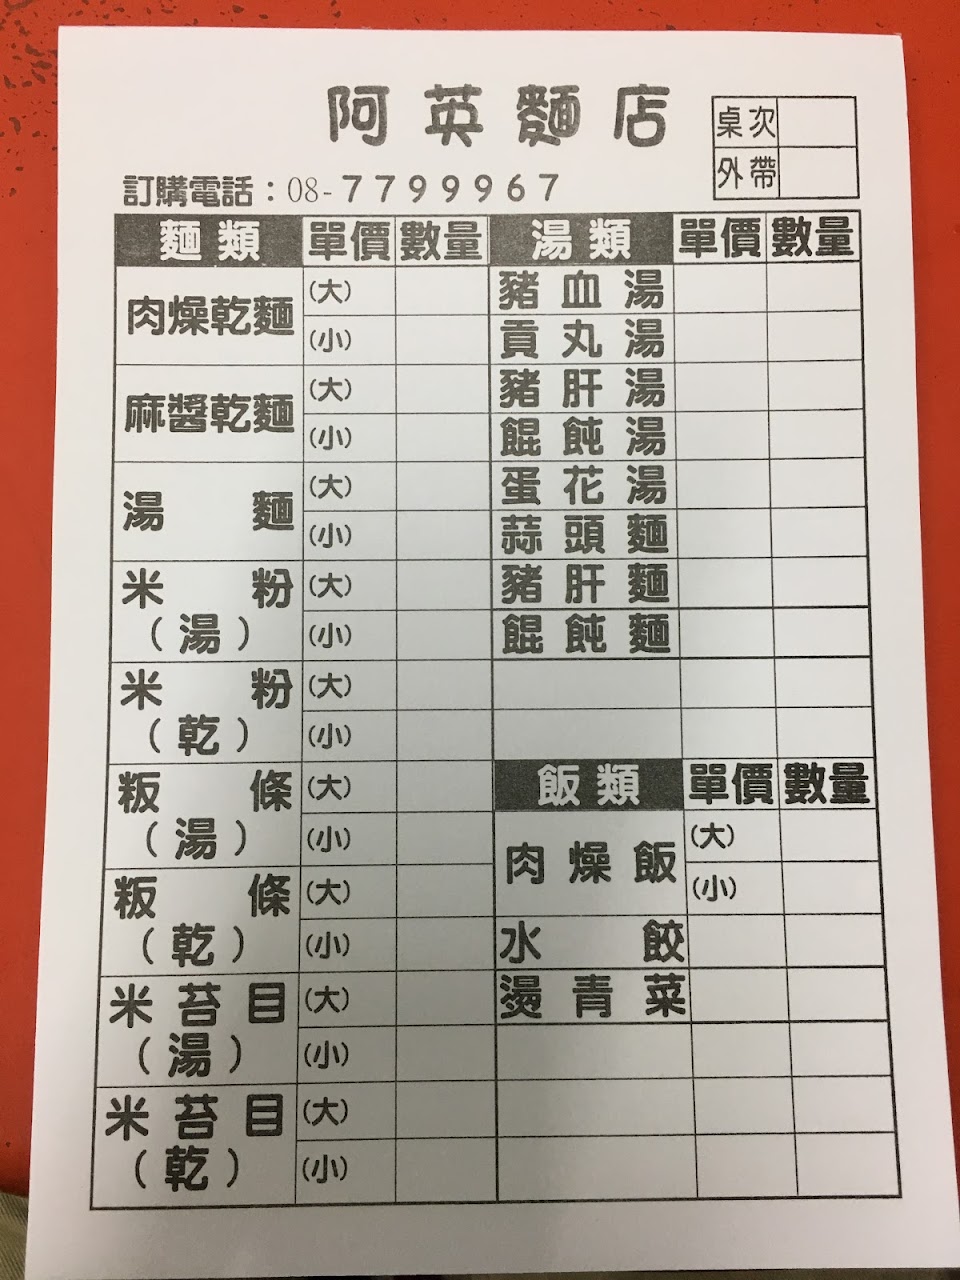 阿英麵店
桌次
外帶
訂購電話：08-7799967
麵類 單價 數量 湯類 單價 數量
肉燥乾麵 (大) 豬血湯
(小) 貢丸湯
麻醬乾麵 (大) 豬肝湯
(小) 餛飩湯
湯麵 (大) 蛋花湯
(小) 蒜頭麵
米粉(湯) (大) 豬肝麵
(小) 餛飩麵
米粉(乾) (大)
(小)
粄條(湯) (大) 飯類 單價 數量
(小) 肉燥飯 (大)
粄條(乾) (大) (小)
(小) 水餃
米苔目(湯) (大) 燙青菜
(小)
米苔目(乾) (大)
(小)